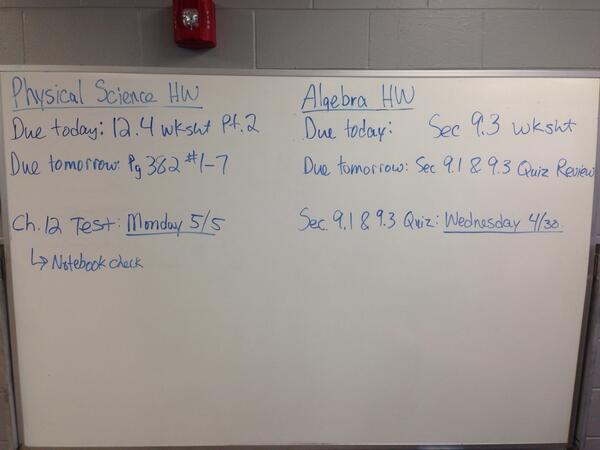 Physical Science HW
Due today: 12.4 wksht Pt.2
Due tomorrow: Pg 382 #1-7
Ch. 12 Test: Monday 5/5
↳ Notebook check
Algebra HW
Due today: Sec 9.3 wksht
Due tomorrow: Sec 9.1 & 9.3 Quiz Review
Sec. 9.1 & 9.3 Quiz: Wednesday 4/30.